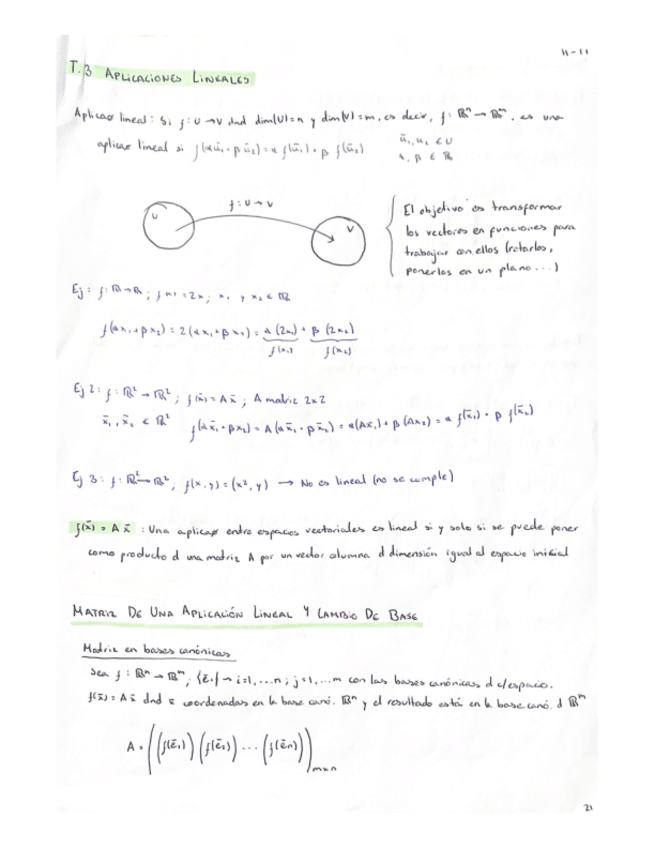 11-11
T.3 APLICACIONES LINEALES
Aplicao lineal: Si f: U → V dnd dim(U)=n y dim(V)=m, es decir, f: ℝⁿ → ℝᵐ. es una
aplicao lineal si f(αū₁ + βū₂) = α f(ū₁) + β f(ū₂)
ū₁, u₂ ∈ U
α, β ∈ ℝ
f: U → V
U
V
El objetivo es transformar
los vectores en funciones para
trabajar con ellos (rotarlos,
ponerlos en un plano...)
Ej: f: ℝ → ℝ; f(x) = 2x; x₁ y x₂ ∈ ℝ
f(αx₁ + βx₂) = 2(αx₁ + βx₂) = α(2x₁) + β(2x₂)
f(x₁) f(x₂)
Ej 2: f: ℝ² → ℝ²; f(x̄) = Ax̄; A matriz 2x2
x̄₁, x̄₂ ∈ ℝ² f(αx̄₁ + βx₂) = A(αx̄₁ + βx̄₂) = α(Ax₁) + β(Ax₂) = α f(x̄₁) + β f(x̄₂)
Ej 3: f: ℝ² → ℝ²; f(x,y) = (x², y) → No es lineal (no se cumple)
f(x̄) = Ax̄ : Una aplicao entre espacios vectoriales es lineal si y solo si se puede poner
como producto d una matriz A por un vector columna d dimensión igual al espacio inicial
MATRIZ DE UNA APLICACIÓN LINEAL Y CAMBIO DE BASE
Matriz en bases canónicas
Sea f: ℝⁿ → ℝᵐ, {ēᵢ} → i=1,...n; j=1,...m con las bases canónicas d c/espacio.
f(x̄) = Ax̄ dnd x̄ coordenadas en la base canó. ℝⁿ y el resultado está en la base canó. d ℝᵐ
A = ((f(ē₁)) (f(ē₂)) ... (f(ēn)))ₘₓₙ
21